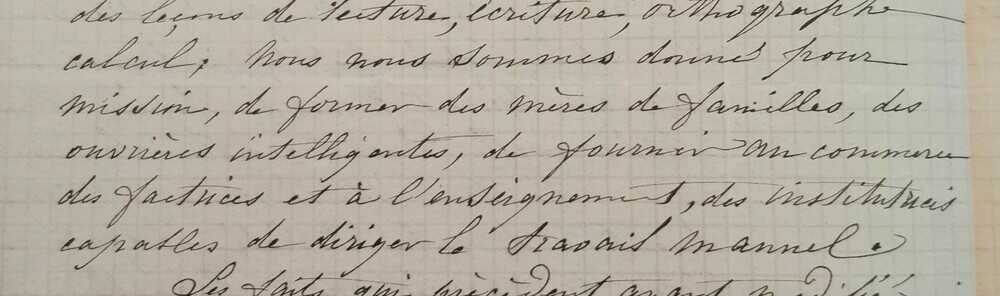 des leçons de lecture, écriture, orthographe
calcul; Nous nous sommes donné pour
mission, de former des mères de familles, des
ouvrières intelligentes, de fournir au commerce
des factrices et à l'enseignement, des institutrices
capables de diriger le travail manuel.
Les faits qui précèdent ayant